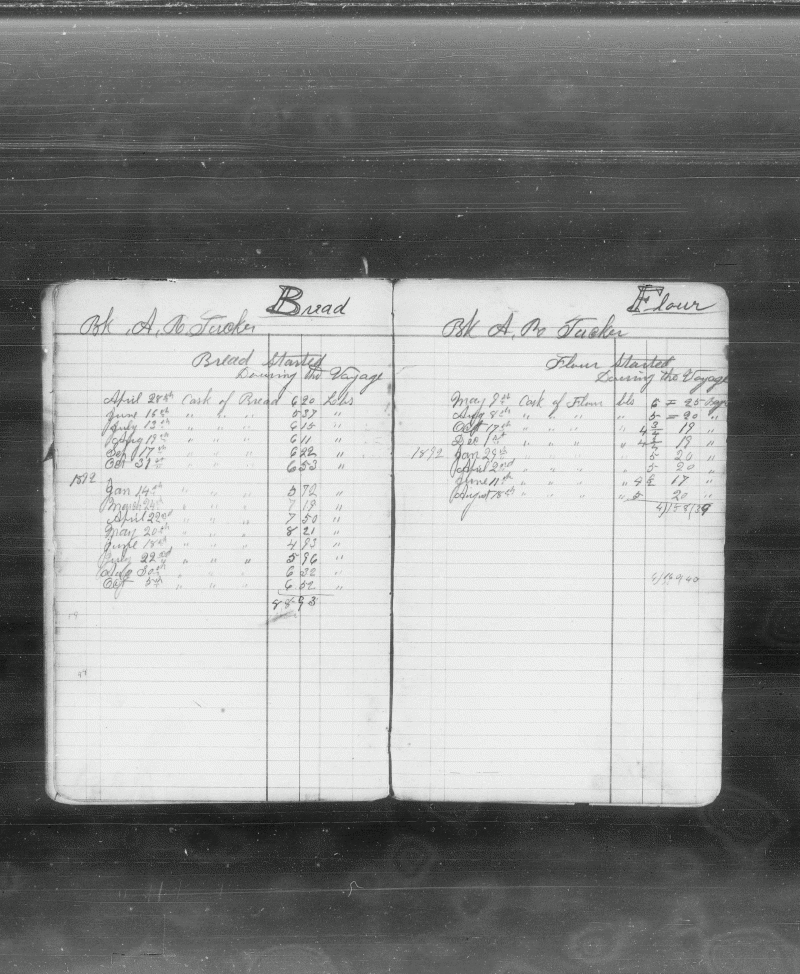 Bread
Bk A. R. Tucker
Bread Started
During the Voyage
April 28th Cask of Bread 620 Lbs
June 16th " " " 537 "
July 13th " " " 615 "
Aug 19th " " " 611 "
Sep 17th " " " 622 "
Oct 31st " " " 653 "
1892
Jan 14th " " " 572 "
March 24th " " " 719 "
April 22nd " " " 750 "
May 20th " " " 821 "
June 18th " " " 493 "
July 22nd " " " 596 "
Aug 30th " " " 632 "
Oct " " " 652 "
8893
Flour
Bk A. R. Tucker
Flour Started
During the Voyage
May 9th Cask of Flour bls 6 = 25 Days
Aug 8th " " " 5 = 20 "
Oct 17th " " " " 4 3/4 19 "
Dec 1st " " " " 4 3/4 19 "
1892 Jan 29th " " " 5 20 "
April 2nd " " " 5 20 "
June 11th " " " " 17 "
August 18th " " " " 5 20 "